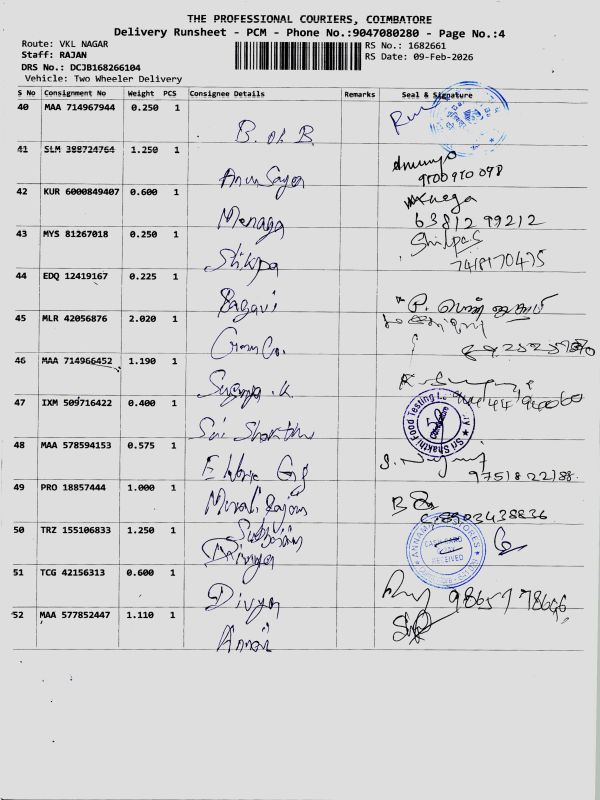 THE PROFESSIONAL COURIERS, COIMBATORE
Delivery Runsheet - PCM - Phone No.:9047080280 - Page No.:4
Route: VKL NAGAR
Staff: RAJAN
DRS No.: DCJB168266104
Vehicle: Two Wheeler Delivery
RS No.: 1682661
RS Date: 09-Feb-2026
S No Consignment No Weight PCS Consignee Details Remarks Seal & Signature
40 MAA 714967944 0.250 1 B. of B
41 SLM 388724764 1.250 1 Arun Sagar
9500970098
42 KUR 6000849407 0.600 1 Menaga
63812 99212
43 MYS 81267018 0.250 1 Shilpa
Shilpas
7418170475
44 EDQ 12419167 0.225 1 Ragavi
45 MLR 42056876 2.020 1
46 MAA 714966452 1.190 1 Suganya .K
47 IXM 509716422 0.400 1 Sri Shakthi
Sri Shakthi Food Testing
Coimbatore
48 MAA 578594153 0.575 1
9751822188
49 PRO 18857444 1.000 1 Murali Rajan
50 TRZ 155106833 1.250 1
CASH CARD
RECEIVED
51 TCG 42156313 0.600 1 Divya
52 MAA 577852447 1.110 1